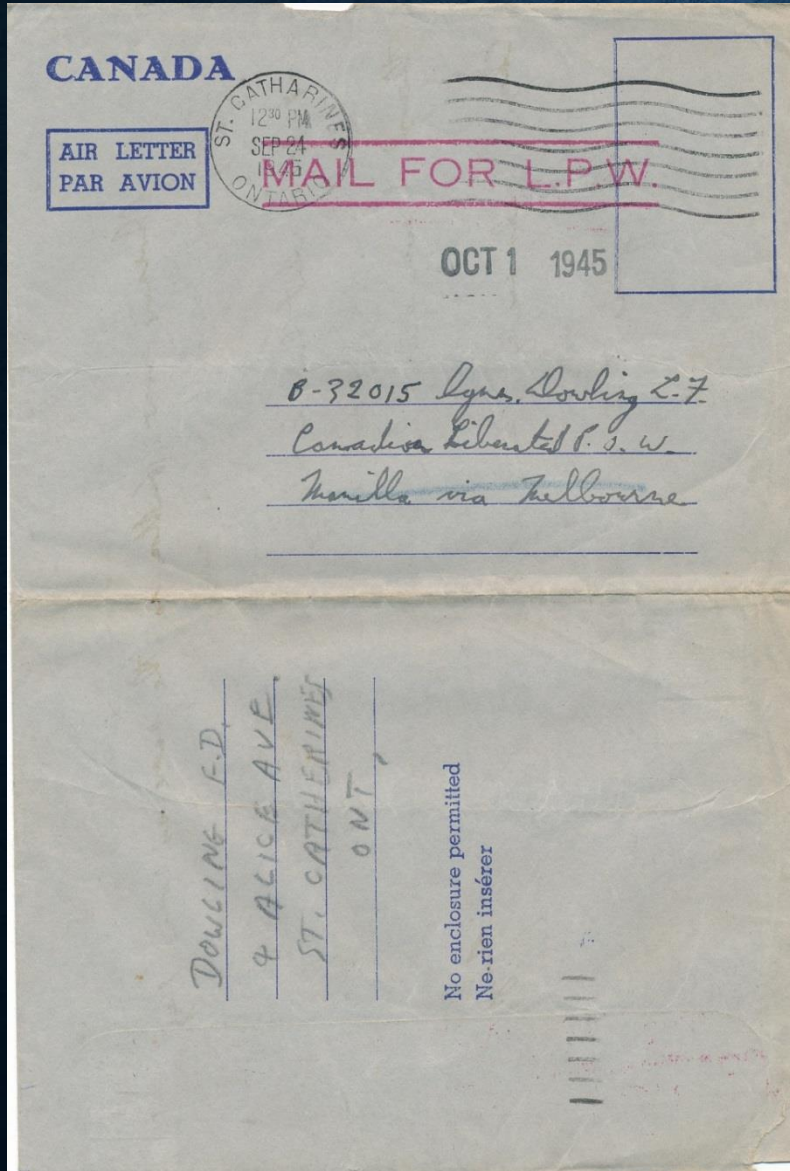 CANADA
AIR LETTER
PAR AVION
ST. CATHARINES
12³⁰ PM
SEP 24
1945
ONTARIO
MAIL FOR L.P.W.
OCT 1 1945
B-32015 Dowling L.F.
Canadian Liberated P.O.W.
Manilla via Melbourne
DOWLING F.D.
4 ALICE AVE.
ST. CATHERINES
ONT.
No enclosure permitted
Ne rien insérer